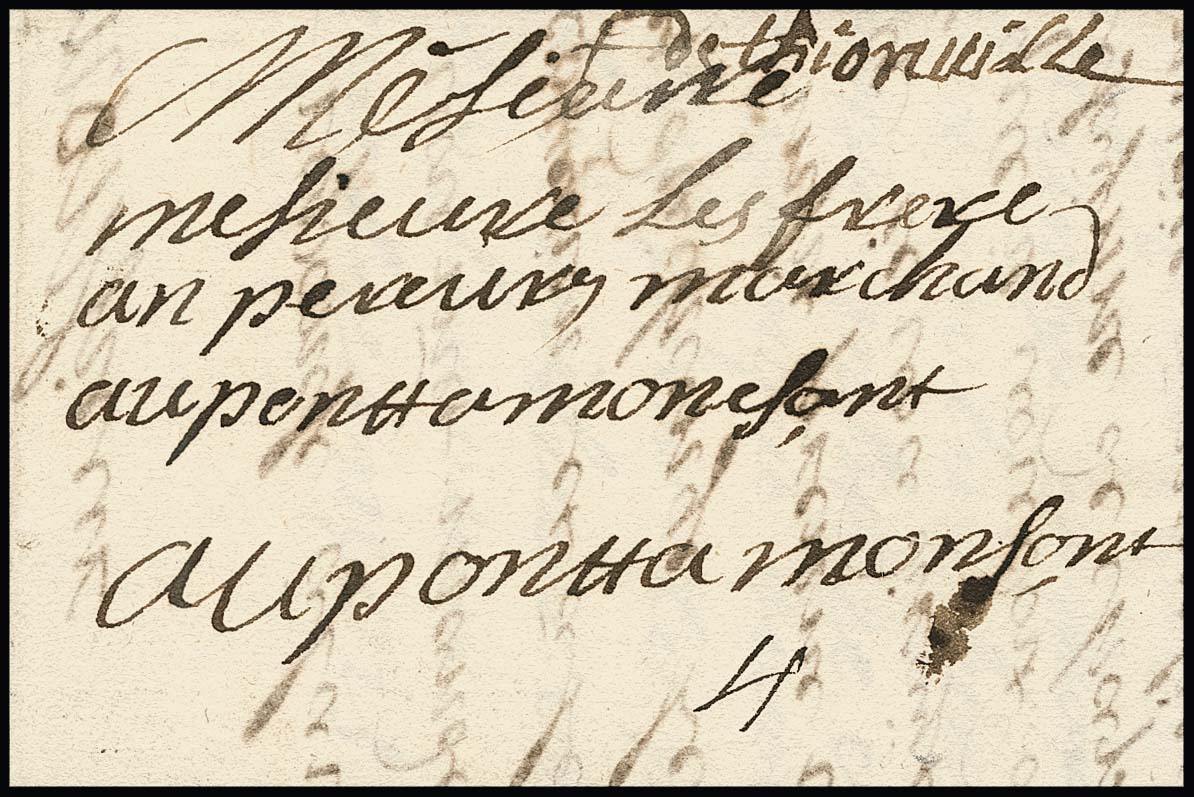 de thionuille
Mesieure
mesieure les frere
an peraury marchand
auponttamonesont
auponttamonsont
4